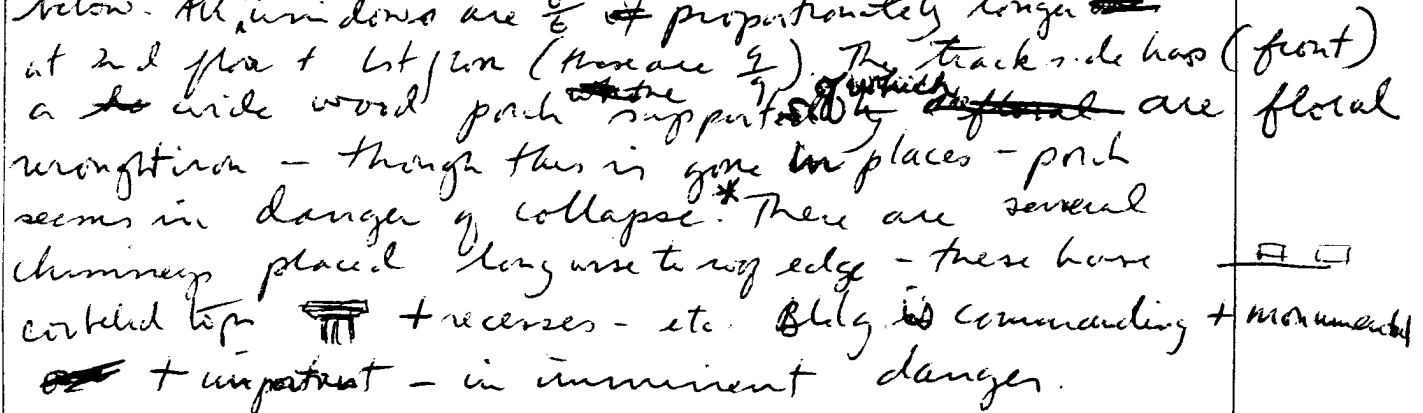 below. All windows are 6/6 proportionately longer
at 2nd floor + 1st floor (these are 9/9). The track side has (front)
a wide wood porch supports of which are floral
wrought iron - though this is gone in places - porch
seems in danger of collapse.* There are several
chimneys placed longwise to roof edge - these have
corbeled tops + recesses - etc. Bldg is commanding + monumental
+ important - in imminent danger.